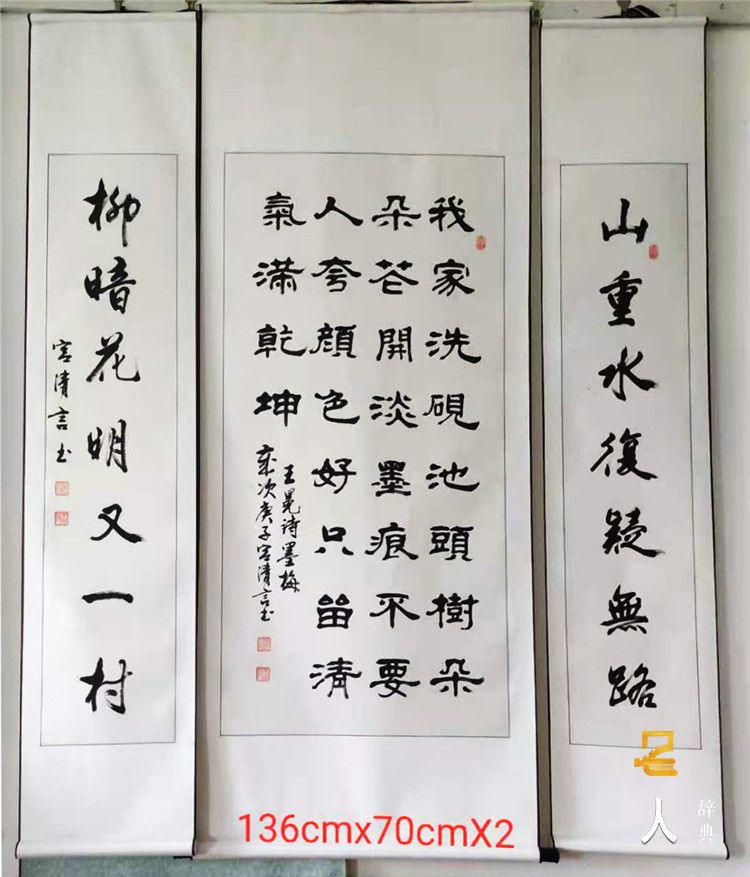 山重水復疑無路
我家洗硯池頭樹朵
朵花開淡墨痕不要
人夸顏色好只留清
氣滿乾坤
王冕诗墨梅
歲次庚子宫清言书
柳暗花明又一村
宫清言书
136cmx70cmX2
名人
辞典